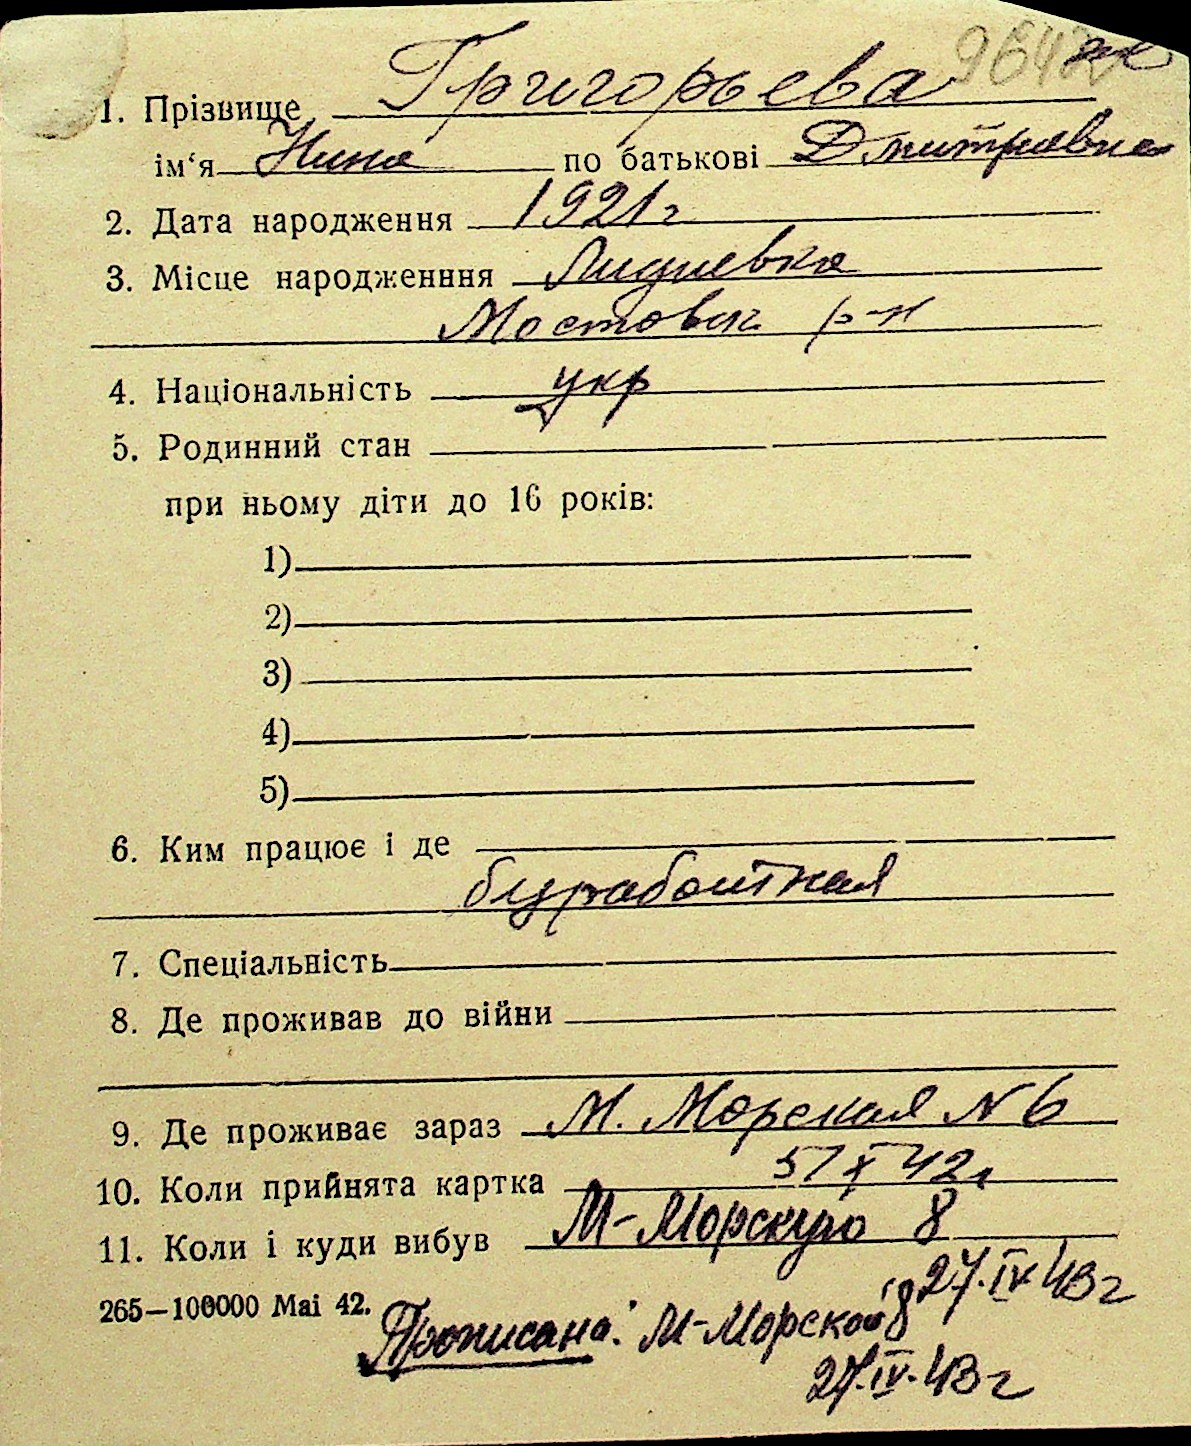 9642
1. Прізвище Григорьева
ім‘я Нина по батькові Дмитриевна
2. Дата народження 1921 г
3. Місце народженння Лидиевка
Мостовск. р-н
4. Національність укр
5. Родинний стан
при ньому діти до 16 років:
1)
2)
3)
4)
5)
6. Ким працює і де
безработная
7. Спеціальність
8. Де проживав до війни
9. Де проживає зараз М. Морская N 6
10. Коли прийнята картка 5/X 42г
11. Коли і куди вибув М-Морскую 8
27.IV 43 г
265—100000 Mai 42.
Прописана: М-Морской 8
27.IV.43 г